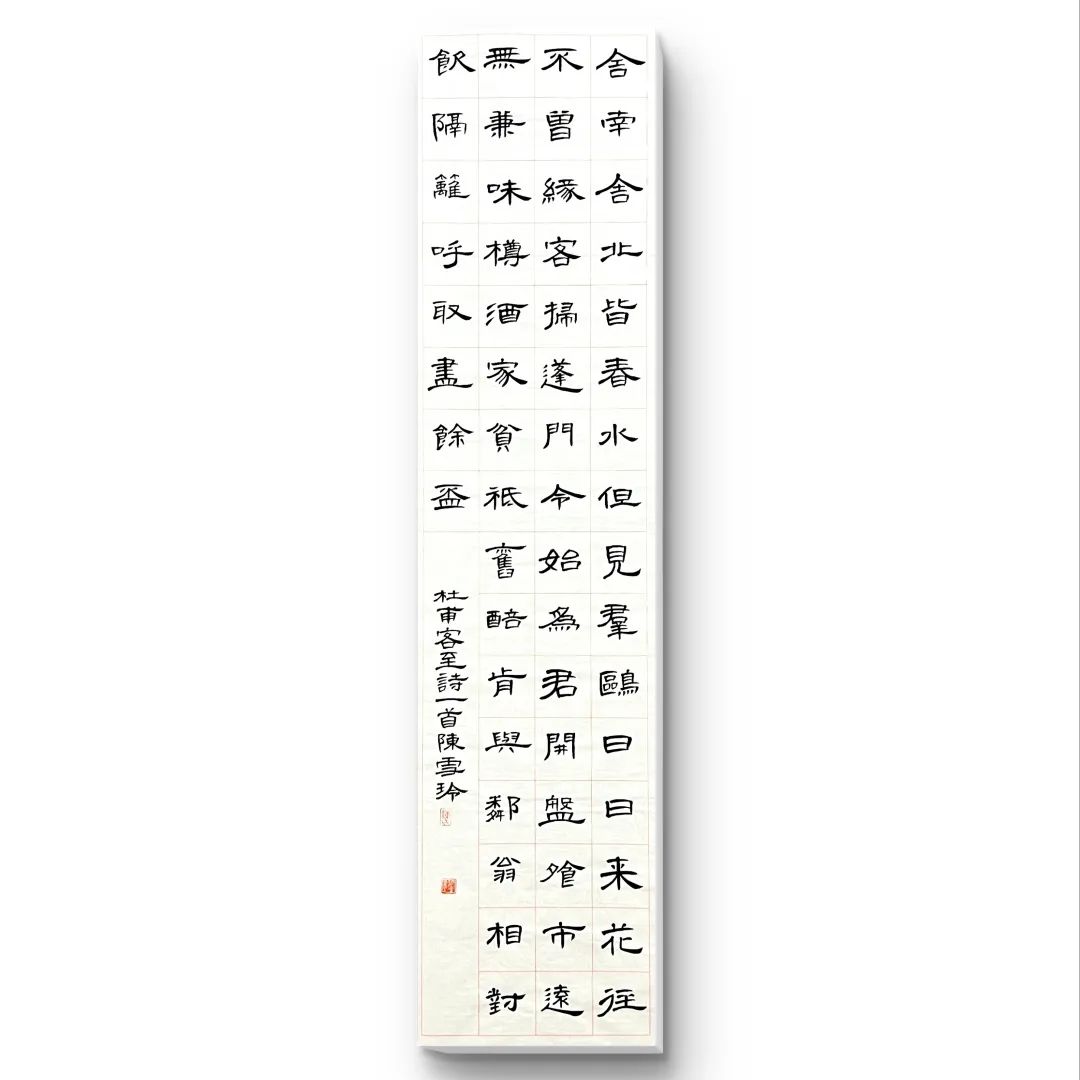 舍南舍北皆春水但見羣鷗日日来花往
不曾緣客掃蓬門今始為君開盤飧市遠
無兼味樽酒家貧祗舊醅肯與鄰翁相對
飲隔籬呼取盡餘盃
杜甫客至詩一首陳雪玲